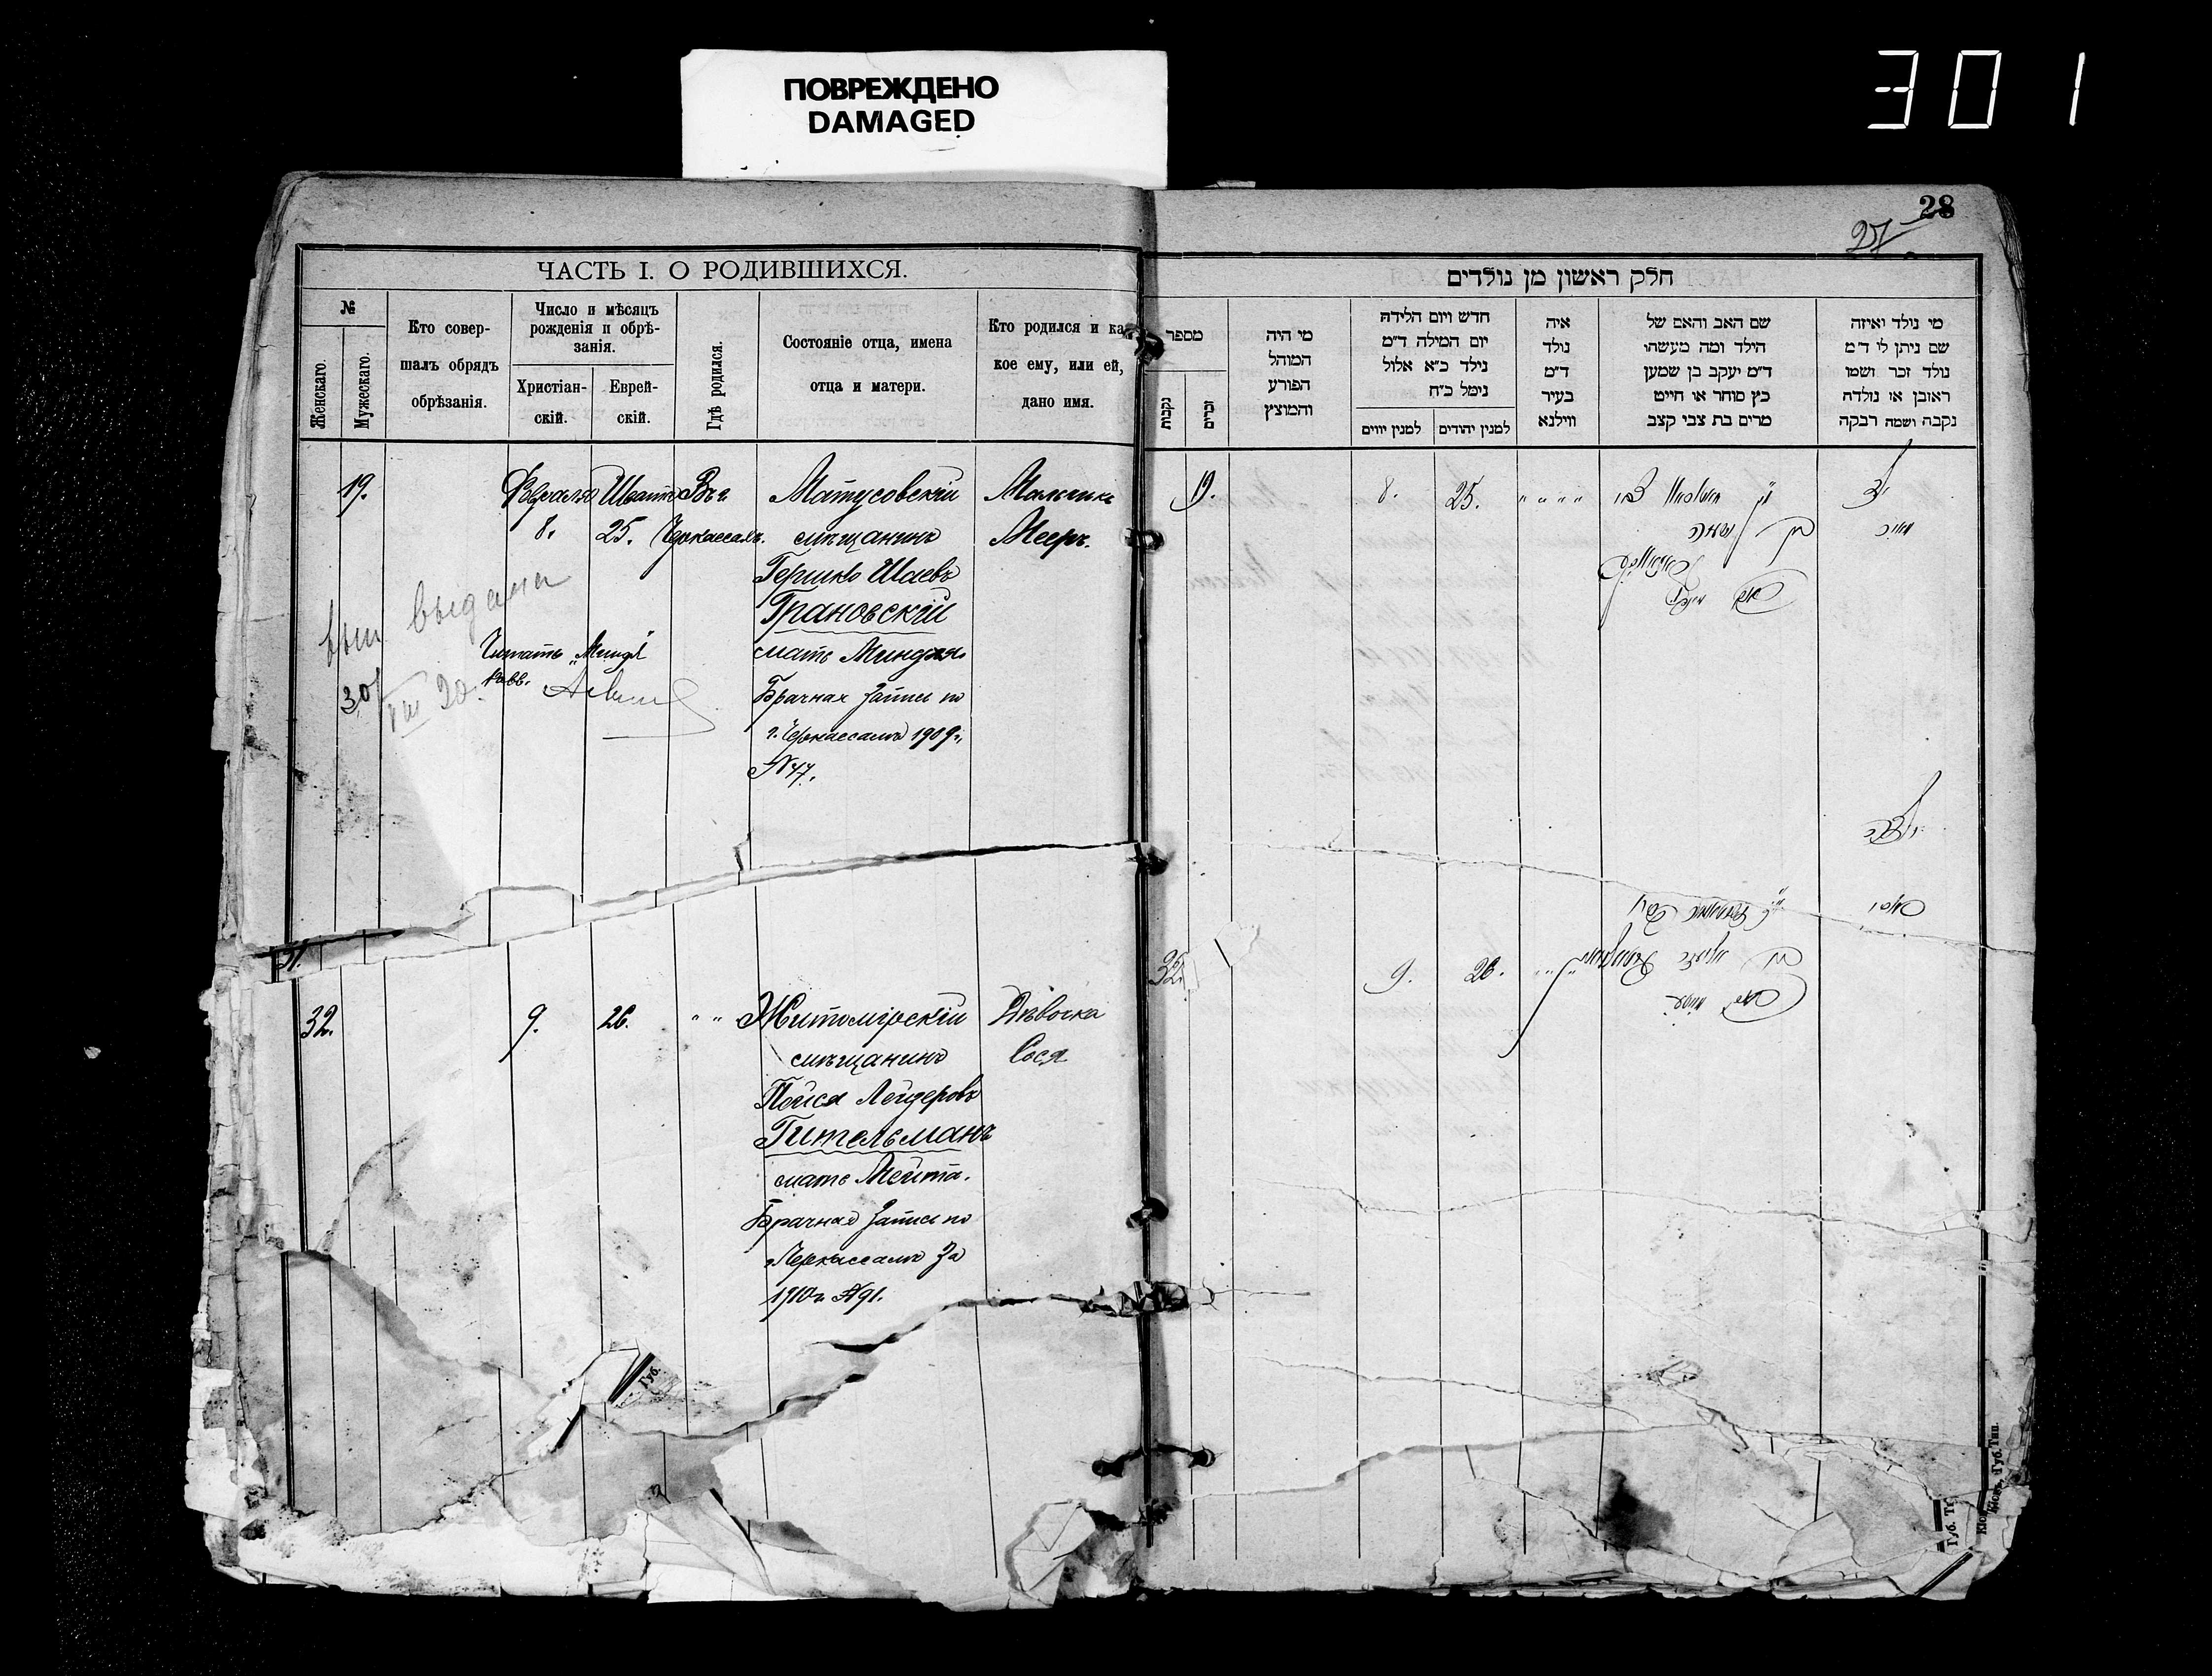 ПОВРЕЖДЕНО
DAMAGED
301
28
27
ЧАСТЬ I. О РОДИВШИХСЯ.
№
Женскаго.
Мужескаго.
Кто совер-
шалъ обрядъ
обрѣзанія.
Число и мѣсяцъ
рожденія и обрѣ-
занія.
Христіан-
скій.
Еврей-
скій.
Гдѣ родился.
Состояніе отца, имена
отца и матери.
Кто родился и ка
кое ему, или ей,
дано имя.
19.
Февраля
8.
Шватъ
25.
Въ г.
Черкассахъ.
Матусовскій
мѣщанинъ
Гершко Шаевъ
Грановскій
мать Миндля
Брачная запись по
г. Черкассамъ 1909 г.
№ 47.
Мальчикъ
Мееръ.
выдана
30/VIII 20.
Читать „Миндля"
Равв.
31.
32.
9.
26.
" "
Житомірскій
мѣщанинъ
Пейся Лейдеровъ
Гительманъ
мать Мейта.
Брачная запись по
г. Черкассамъ за
1910 г. № 91.
Дѣвочка
Сося
Губ.
חלק ראשון מן נולדים
מספר
נקבות
זכרים
מי היה
המוהל
הפורע
והמוצץ
חדש ויום הלידה
יום המילה ד״מ
נילד כ״א אלול
נימל כ״ח
למנין יווים
למנין יהודים
איה
נולד
ד״מ
בעיר
ווילנא
שם האב והאם של
הילד ומה מעשהו
ד״מ יעקב בן שמען
כץ סוחר או חייט
מרים בת צבי קצב
מי נולד ואיזה
שם ניתן לו ד״מ
נולד זכר ושמו
ראובן או נולדה
נקבה ושמה רבקה
19.
8.
25.
" " " "
צבי
בן
ילד
מאיר
32.
9.
26.
בן
ילדה
Губ. Тип.